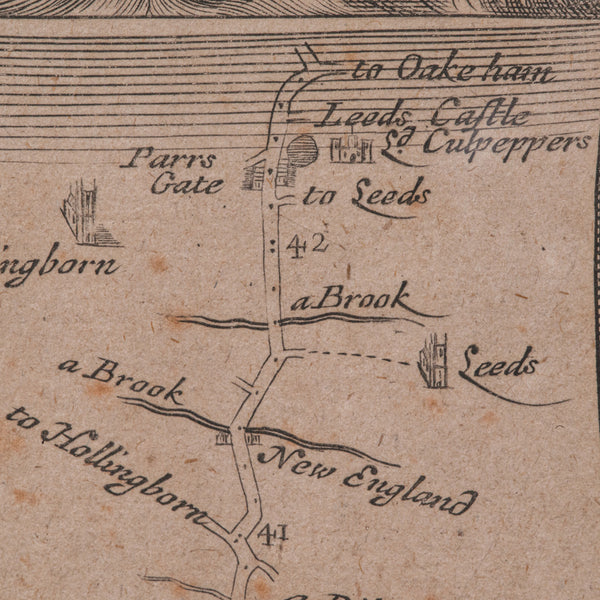 to Oakeham
Leeds Castle
Lᵈ Culpeppers
Parrs
Gate
to Leeds
42
ingborn
a Brook
Leeds
a Brook
to Hollingborn
New England
41